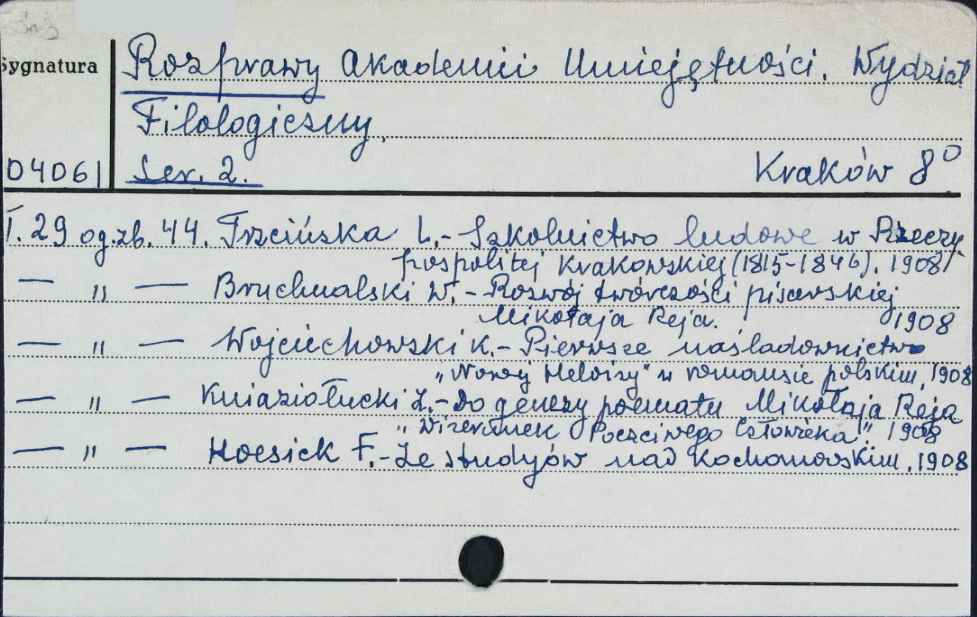 Sygnatura
Rozprawy Akademii Umiejętności. Wydział
Filologiczny.
04061 Ser. 2. Kraków 8°
T. 29 og.zb. 44. Trzcińska L.- Szkolnictwo ludowe w Rzeczy-
pospolitej Krakowskiej (1815-1846). 1908
— " — Bruchnalski W. - Rozwój twórczości pisarskiej
Mikołaja Reja. 1908
— " — Wojciechowski K.- Pierwsze naśladownictwo
"Nowej Heloizy" w romansie polskim, 1908
— " — Kniaziołucki Z.-Do genezy poematu Mikołaja Reja
"Wizerunek Poczciwego Człowieka". 1908
— " — Hoesick F.-Ze studyów nad Kochanowskim, 1908